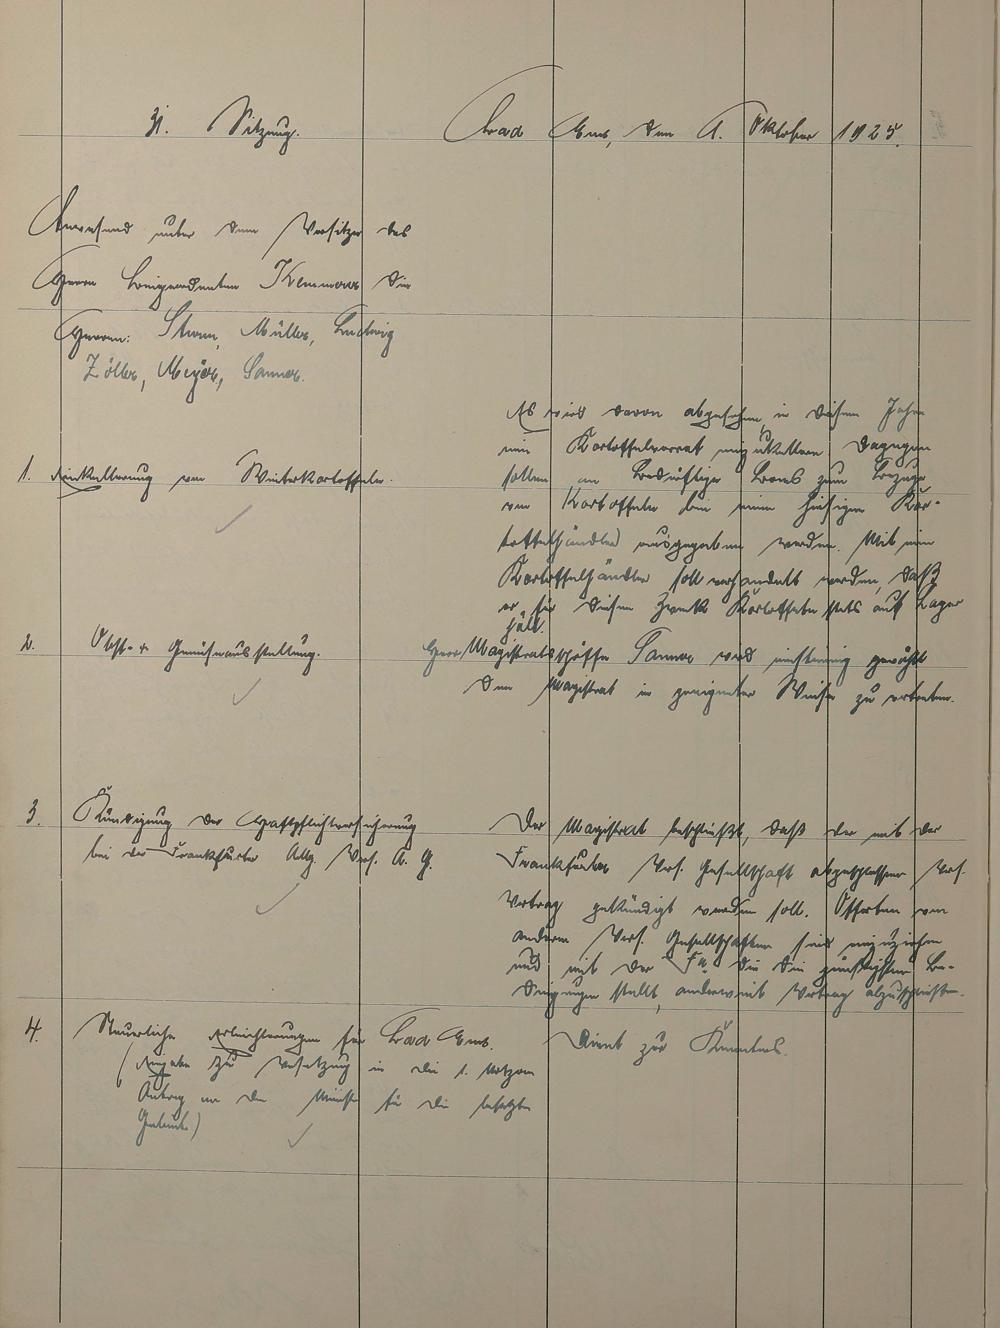 31. Sitzung. Bad Ems, den 1. Oktober 1925.
Anwesend unter dem Vorsitze des
Herrn Beigeordneten Kemmerer die
Herren: Sturm, Müller, Ludwig
Zöller, Meyer, Sanner.
1. Einkellerung von Winterkartoffeln.
Es wird davon abgesehen, in diesem Jahre
einen Kartoffelvorrat einzukellern. Dagegen
sollen an Bedürftige Bons zum Bezuge
von Kartoffeln bei einem hiesigen Kar-
toffelhändler ausgegeben werden. Mit einem
Kartoffelhändler soll verhandelt werden, daß
er für diesen Zweck Kartoffeln stets auf Lager
hält.
2. Obst- u. Gemüseausstellung.
Herr Magistratsschöffe Sanner wird einstimmig gewählt
den Magistrat in geeigneter Weise zu vertreten.
3. Kündigung der Haftpflichtversicherung
bei der Frankfurter Allg. Vers. A. G.
Der Magistrat beschließt, daß der mit der
Frankfurter Vers. Gesellschaft abgeschlossene Vers.
Vertrag gekündigt werden soll. Offerten von
anderen Vers. Gesellschaften sind einzuziehen
und mit der Fa. die die günstigsten Be-
dingungen stellt, anderweit Vertrag abzuschließen.
4. Steuerliche Erleichterungen für Bad Ems.
(Eingabe zu Versetzung in die 1.
Antrag an den Minister für die besetzten
Gebiete)
Dient zur Kenntnis.